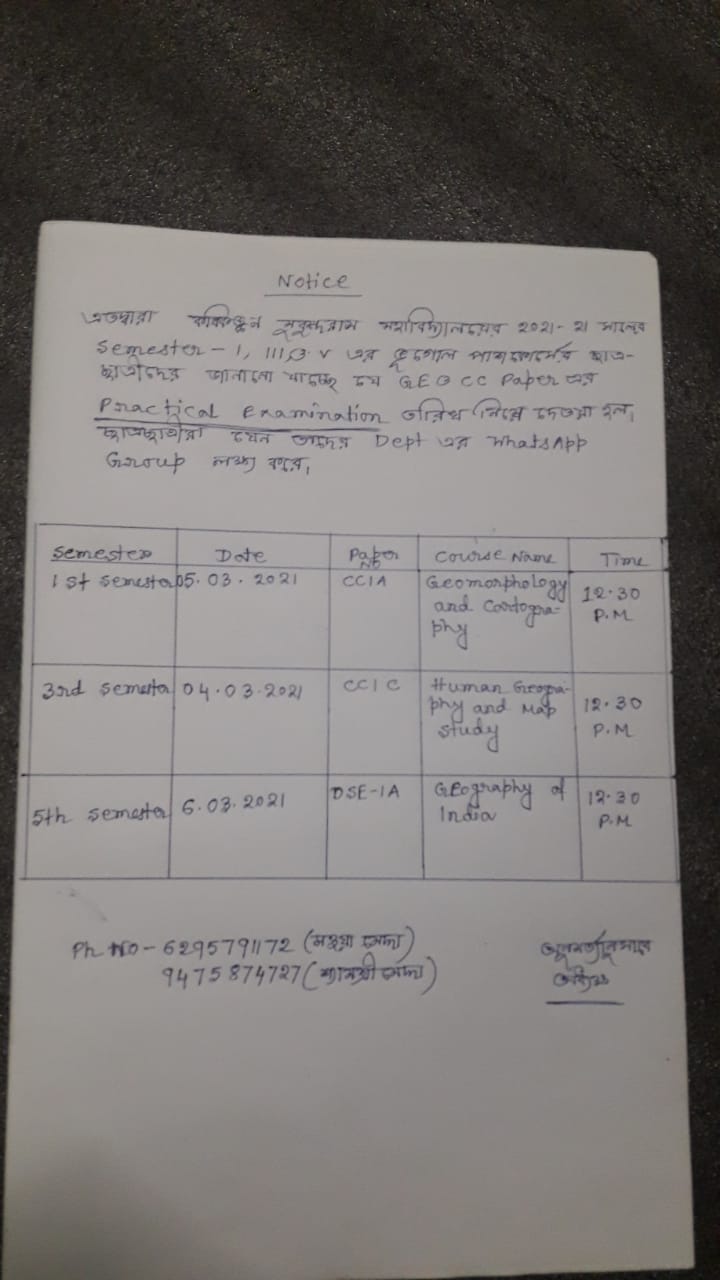 Notice
এতদ্বারা কবিকঙ্কন মুকুন্দরাম মহাবিদ্যালয়ের 2021-21 সালের
Semester - I, III, ও V এর ভূগোল পাসকোর্সের ছাত্র-
ছাত্রীদের জানানো যাচ্ছে যে GEO CC Paper এর
Practical Examination তারিখ নিম্নে দেওয়া হল,
ছাত্রছাত্রীরা যেন তাদের Dept এর WhatsApp
Group লক্ষ্য করে,
Semester Date Paper No Course Name Time
1st semester 05.03.2021 CC1A Geomorphology and Cartography 12.30 P.M
3rd semester 04.03.2021 CC1C Human Geography and Map study 12.30 P.M
5th semester 6.03.2021 DSE-1A Geography of India 12.30 P.M
Ph No - 6295791172 (
9475874727 (
অনুমত্যানুসারে
অধ্যক্ষ